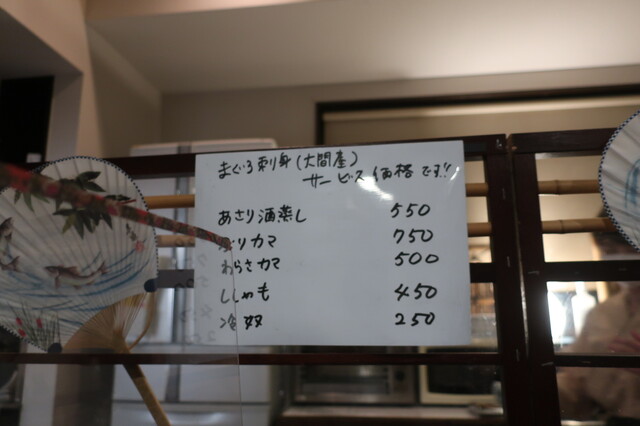 まぐろ刺身(大間産)
サービス価格です!!
あさり酒蒸し 550
ぶりカマ 750
わらさカマ 500
ししゃも 450
冷奴 250